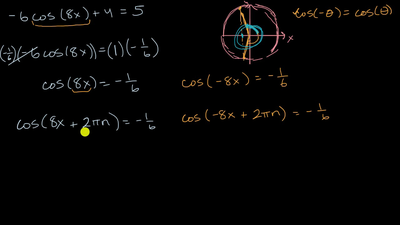 -6 cos(8x) + 4 = 5
(-1/6)(-6 cos(8x)) = (1)(-1/6)
cos(8x) = -1/6
cos(8x + 2πn) = -1/6
x
cos(-θ) = cos(θ)
cos(-8x) = -1/6
cos(-8x + 2πn) = -1/6